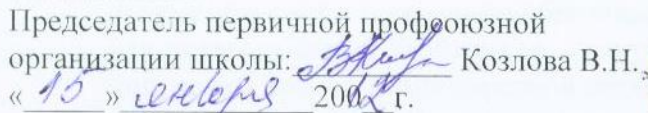 Председатель первичной профсоюзной
организации школы: Козлова В.Н.
«15» января 2012 г.